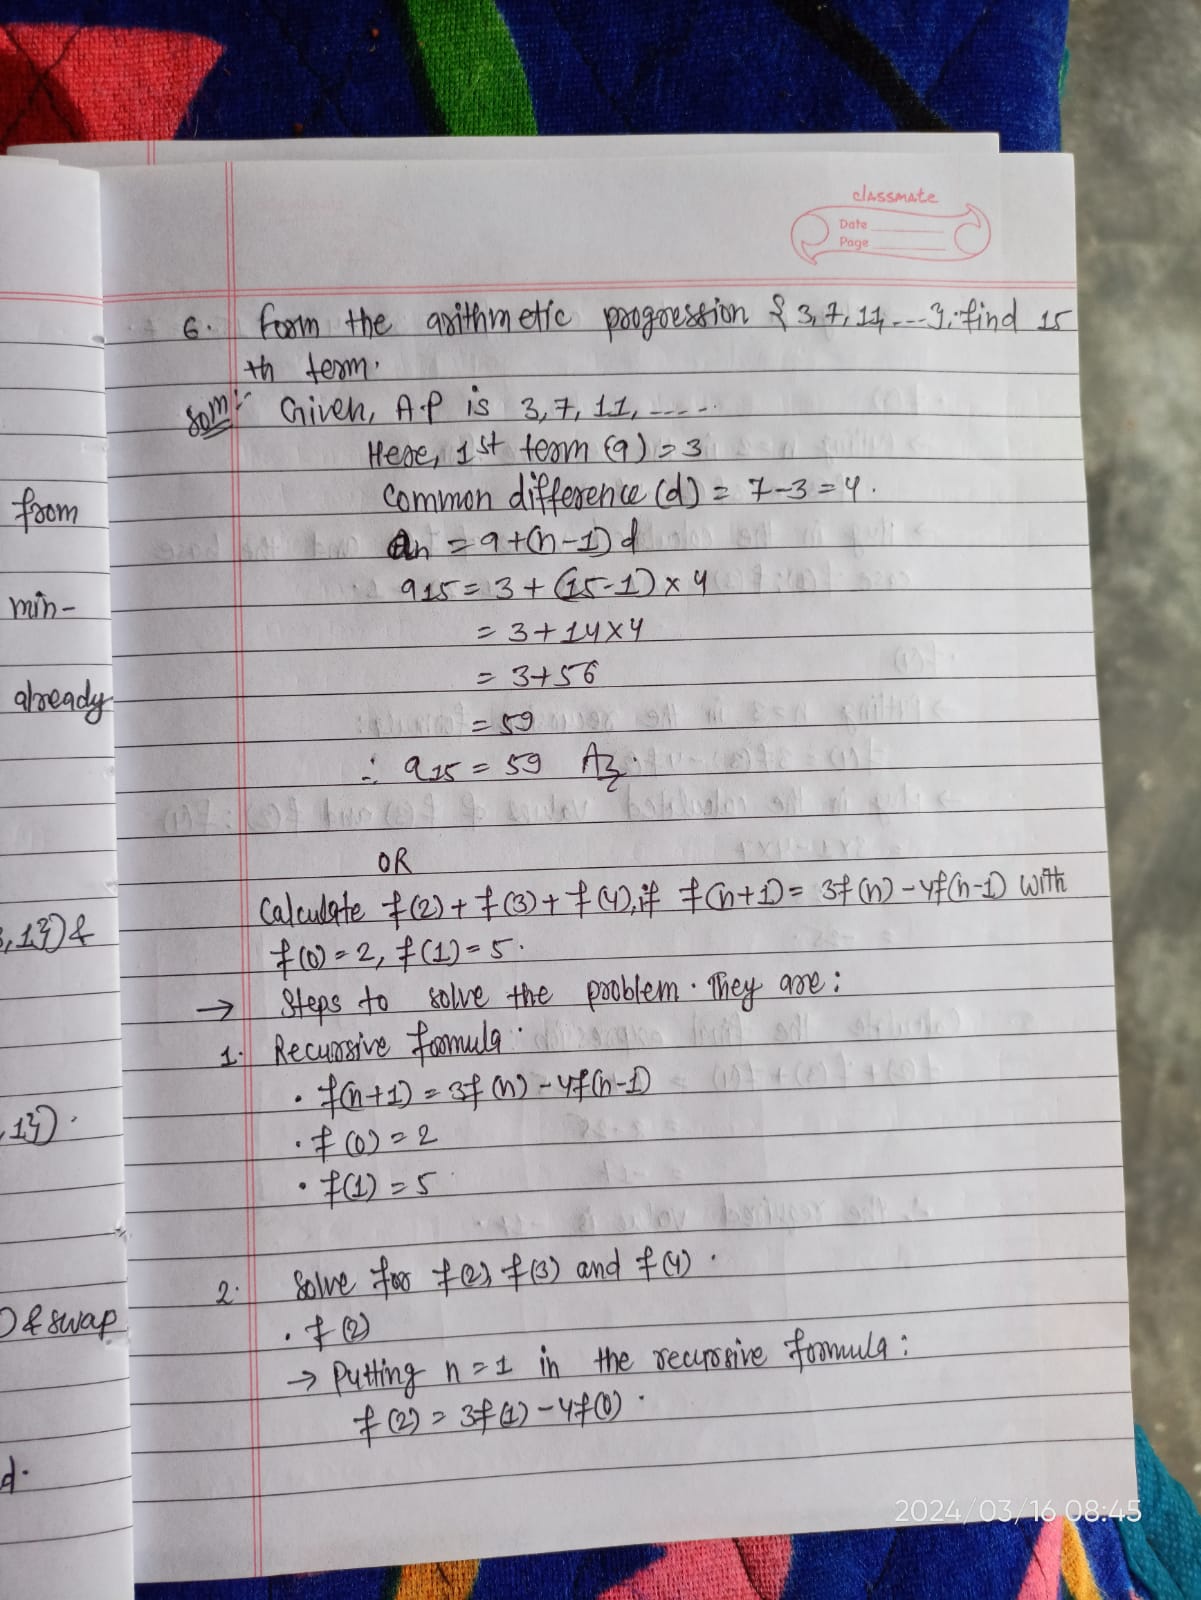 classmate
Date
Page
6. Form the arithmetic progression {3, 7, 11, ...}. find 15
th term.
Soln:- Given, A.P is 3, 7, 11, -----
Here, 1st term (a) = 3
Common difference (d) = 7-3 = 4.
an = a+(n-1) d
a15 = 3 + (15-1) × 4
= 3 + 14×4
= 3+56
= 59
∴ a15 = 59
OR
Calculate f(2) + f(3) + f(4), if f(n+1) = 3f(n) - 4f(n-1) with
f(0) = 2, f(1) = 5.
→ Steps to solve the problem. They are:
1. Recursive formula.
• f(n+1) = 3f(n) - 4f(n-1)
• f(0) = 2
• f(1) = 5
2. Solve for f(2), f(3) and f(4).
• f(2)
→ Putting n = 1 in the recursive formula:
f(2) = 3f(1) - 4f(0).
from
min-
already
,1}) &
,1}).
& swap
d.
2024/03/16 08:45